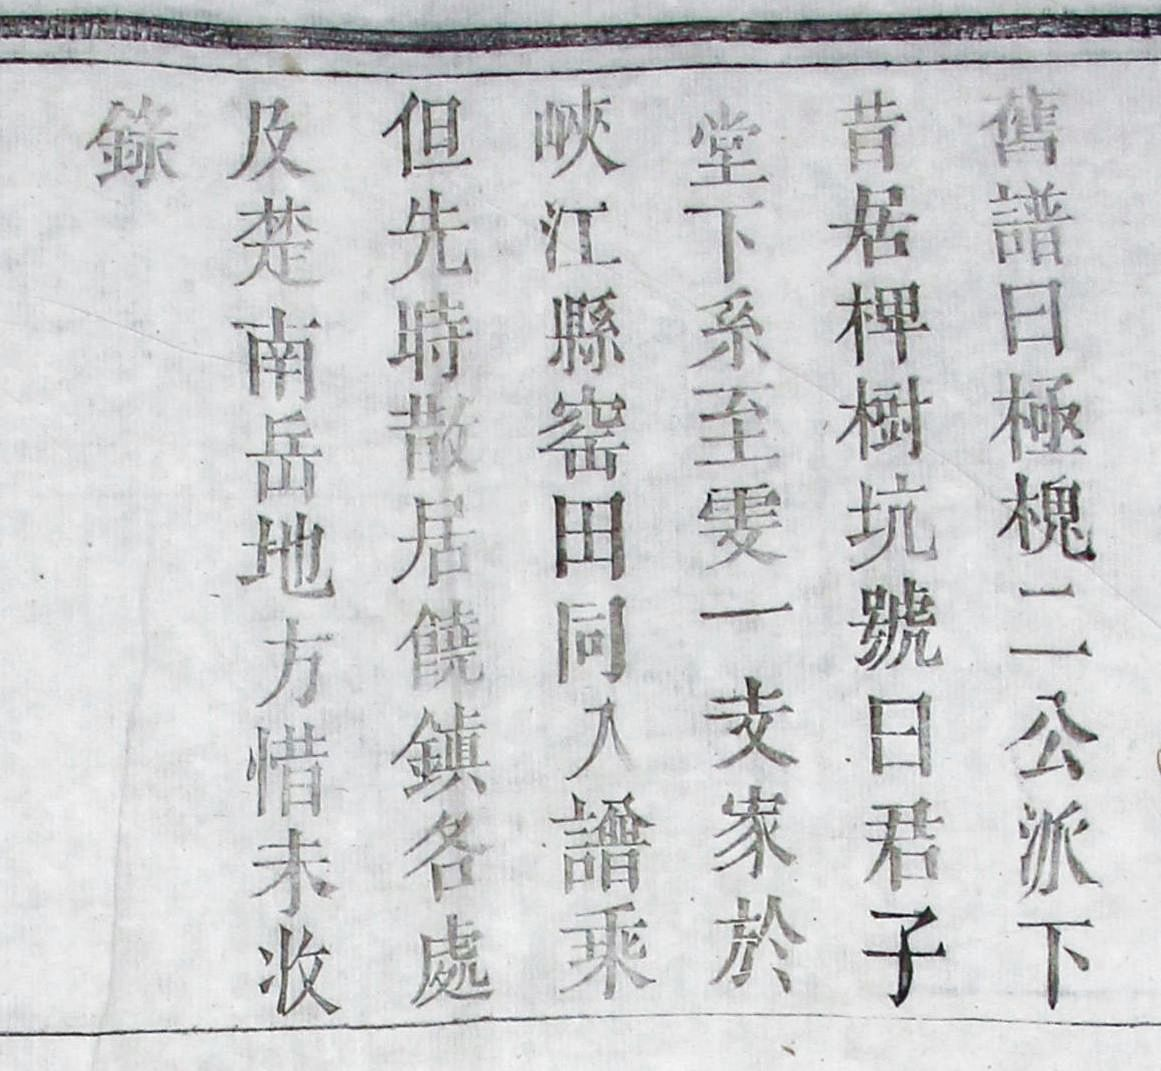 舊譜曰極槐二公派下
昔居稗樹坑號曰君子
堂下系至雯一支家於
峽江縣窑田同入譜乘
但先時散居饒鎮各處
及楚南岳地方惜未收
錄